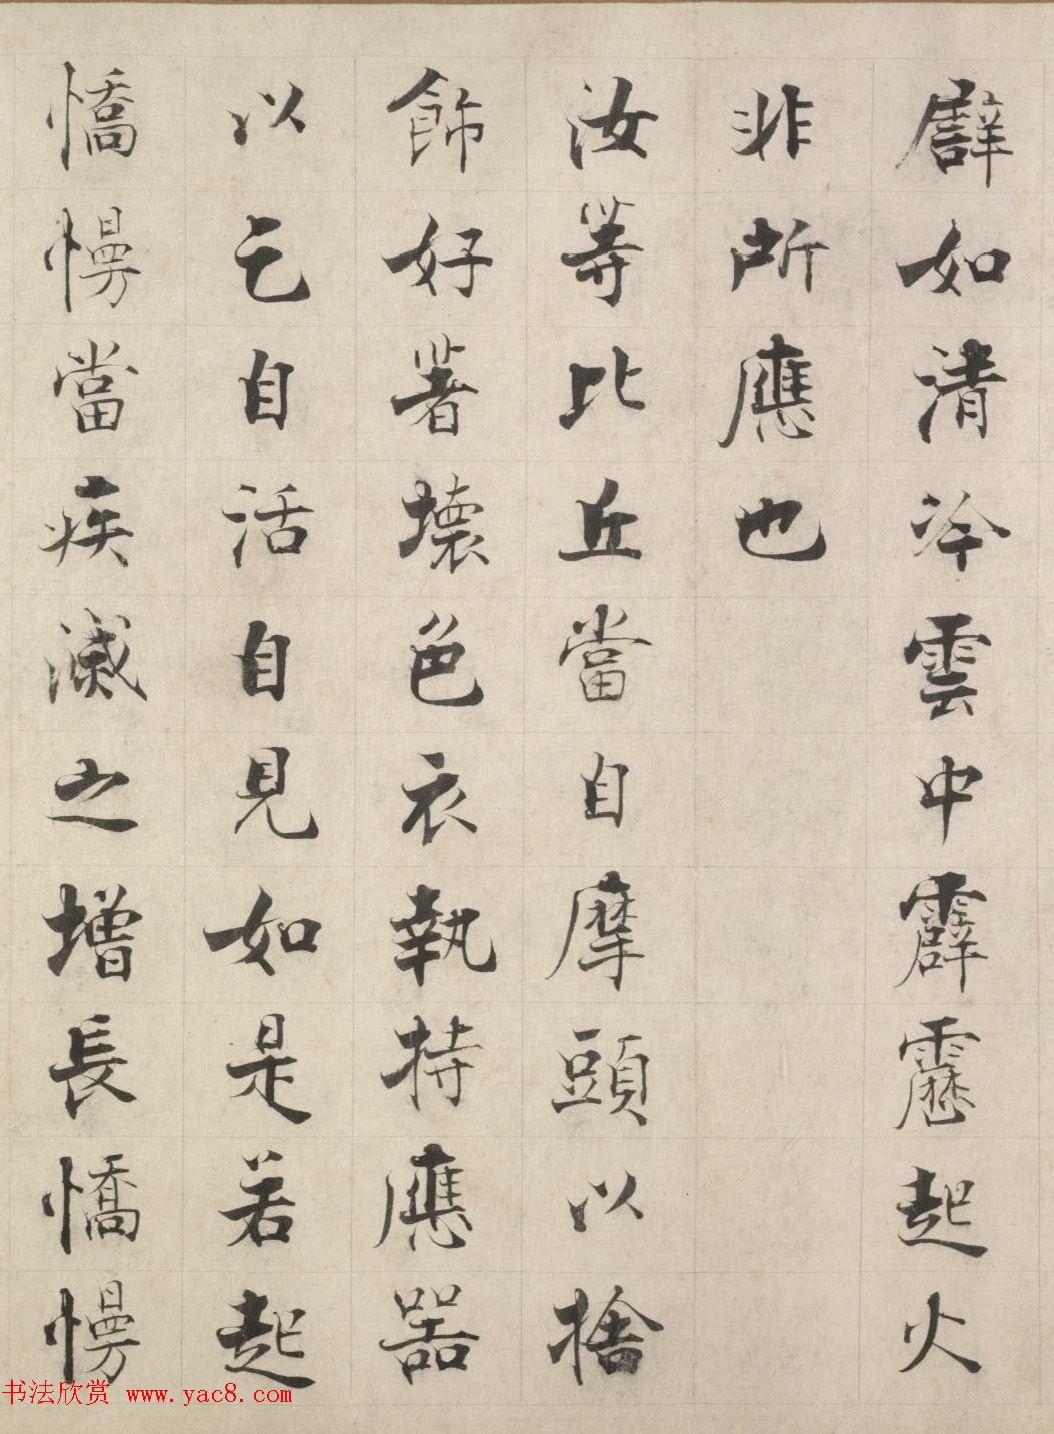 譬如清冷雲中霹靂起火
非所應也
汝等比丘當自摩頭以捨
飾好著壞色衣執持應器
以乞自活自見如是若起
憍慢當疾滅之增長憍慢
书法欣赏 www.yac8.com